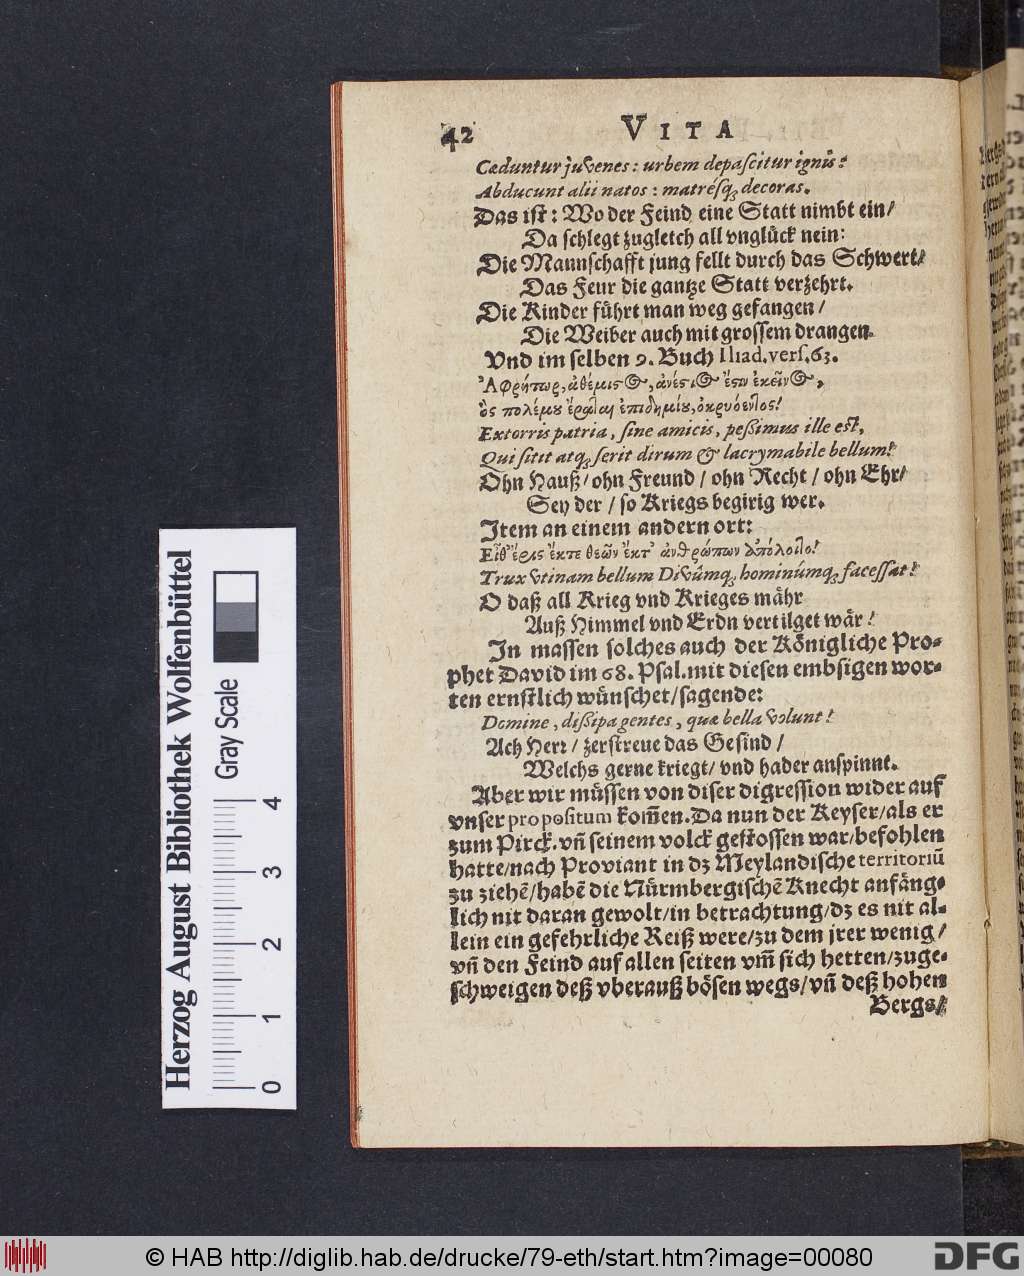 42 VITA
Cæduntur juvenes: urbem depaſcitur ignis:
Abducunt alii natos: matréſq; decoras.
Das iſt: Wo der Feind eine Statt nimbt ein/
Da ſchlegt zugleich all vnglück nein:
Die Mannſchafft jung fellt durch das Schwert/
Das Feur die gantze Statt verzehrt.
Die Kinder führt man weg gefangen/
Die Weiber auch mit groſſem drangen.
Vnd im ſelben 9. Buch Iliad. verſ. 63.
Ἀφρήτωρ, ἀθέμιστ⊕, ἀνέστι⊕ ἐστιν ἐκεῖν⊕,
ὃς πολέμου ἔραται ἐπιδημίου, ὀκρυόεντος!
Extorris patria, ſine amicis, peßimus ille eſt,
Qui ſitit atq; ſerit dirum & lacrymabile bellum!
Ohn Hauß/ ohn Freund/ ohn Recht/ ohn Ehr/
Sey der/ ſo Kriegs begirig wer.
Item an einem andern ort:
Εἴθ' ἔρις ἔκ τε θεῶν ἔκ τ' ἀνθρώπων ἀπόλοιτο!
Trux vtinam bellum Divûmq; hominúmq; faceſſat!
O daß all Krieg vnd Krieges mähr
Auß Himmel vnd Erdn vertilget wär!
In maſſen ſolches auch der Königliche Pro-
phet David im 68. Pſal. mit dieſen embſigen wor-
ten ernſtlich wünſchet/ ſagende:
Domine, dißipa gentes, quæ bella volunt!
Ach Herr/ zerſtreue das Geſind/
Welchs gerne kriegt/ vnd hader anſpinnt.
Aber wir müſſen von diſer digreſſion wider auf
vnſer propoſitum kom̃en. Da nun der Keyſer/ als er
zum Pirck. vñ ſeinem volck geſtoſſen war/ befohlen
hatte/ nach Proviant in dz Meylandiſche territoriũ
zu ziehẽ/ habẽ die Nürmbergiſchẽ Knecht anfäng-
lich nit daran gewolt/ in betrachtung/ dz es nit al-
lein ein gefehrliche Reiß were/ zu dem jrer wenig/
vñ den Feind auf allen ſeiten vm̃ ſich hetten/ zuge-
ſchweigen deß vberauß böſen wegs/ vñ deß hohen
Bergs/
Herzog August Bibliothek Wolfenbüttel
Gray Scale
0 1 2 3 4
© HAB http://diglib.hab.de/drucke/79-eth/start.htm?image=00080
DFG